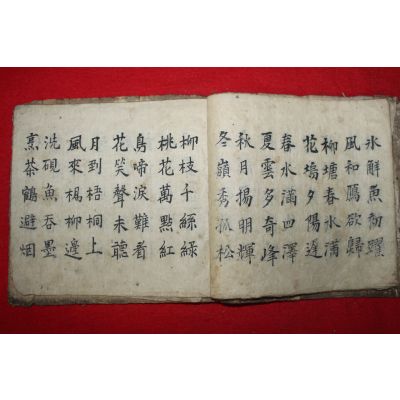 氷解魚初躍
風和鴈欲歸
柳塘春水漫
花塢夕陽遲
春水滿四澤
夏雲多奇峰
秋月揚明輝
冬嶺秀孤松
柳枝千絲綠
桃花萬點紅
鳥啼淚難看
花笑聲未聽
月到梧桐上
風來楊柳邊
洗硯魚吞墨
烹茶鶴避烟